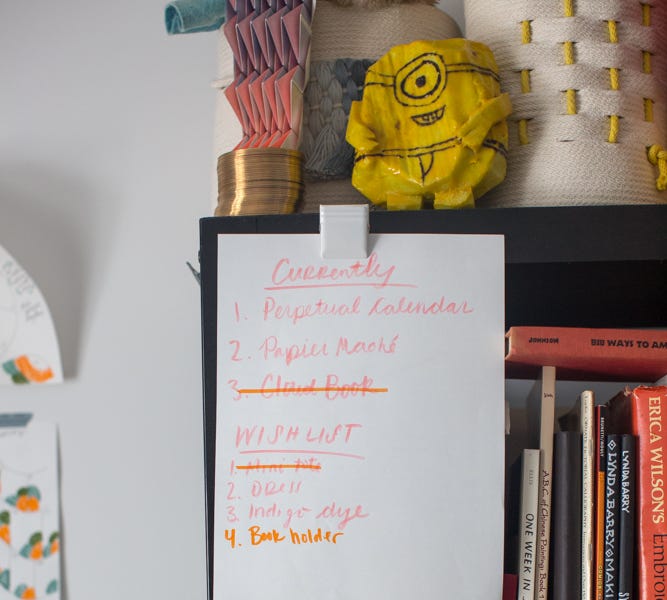 Currently
1. Perpetual Calendar
2. Papier Maché
3. Cloud Book
WISH LIST
1. Mini tote
2. DRESS
3. Indigo dye
4. Book holder
JOHNSON BIB WAYS TO AM
ELLIS ONE WEEK IN
A.B.C. of Chinese Paintings Book
LYNDA BARRY MAKI
LYNDA BARRY SY
ERICA WILSON'S Embroi